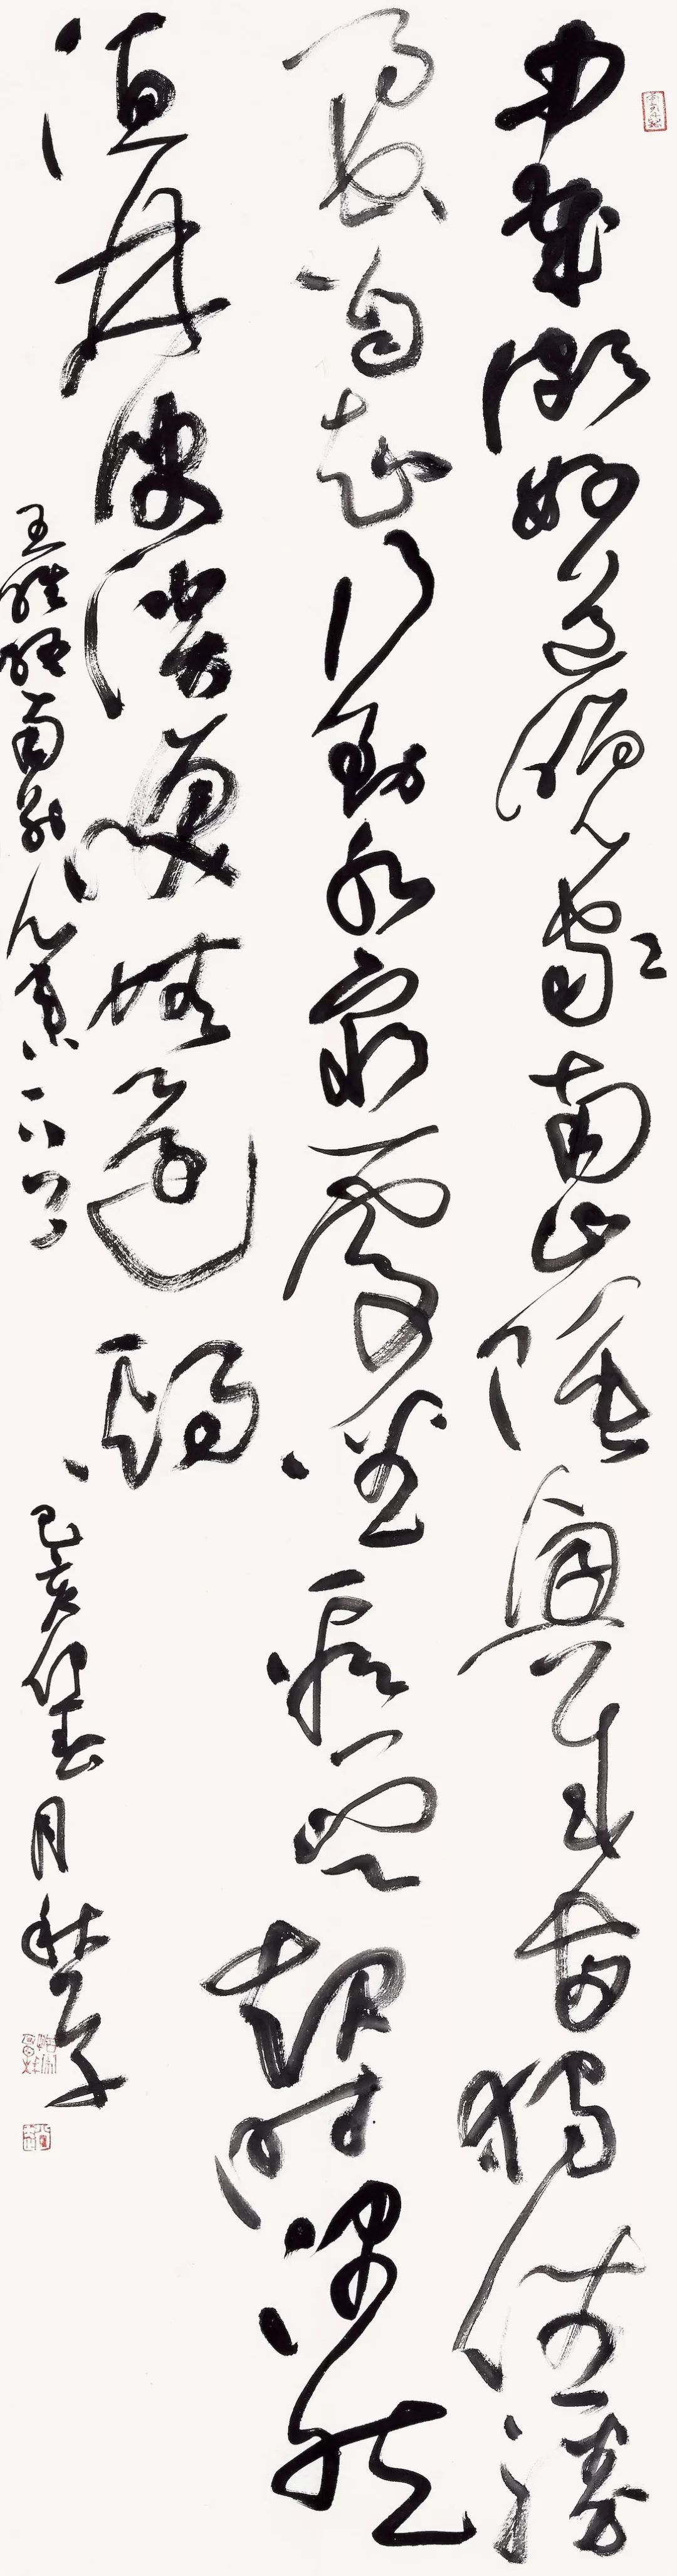 中歲頗好道晚家南山陲興來每獨往勝
事空自知行到水窮處坐看雲起時偶然
值林叟談笑無還期
王維終南別業一首 己亥春月